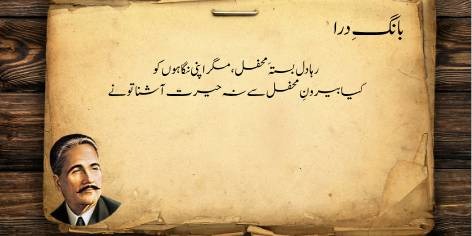 بانگِ درا
رہا دل بستۂ محفل، مگر اپنی نگاہوں کو
کیا بیرونِ محفل سے نہ حیرت آشنا تو نے